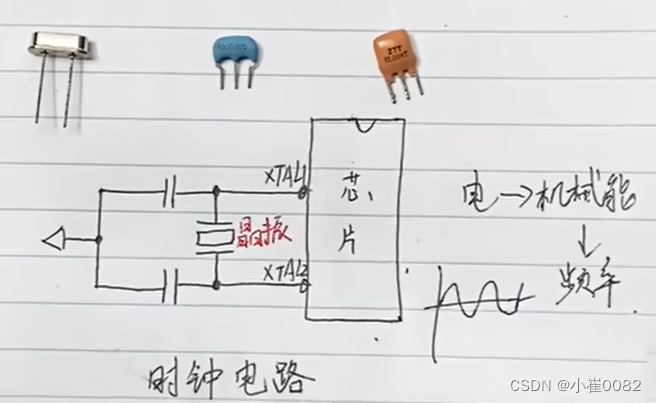 ITT
XTAL1
芯
片
晶振
XTAL2
电→机械能
↓
频率
时钟电路
CSDN @小崔0082